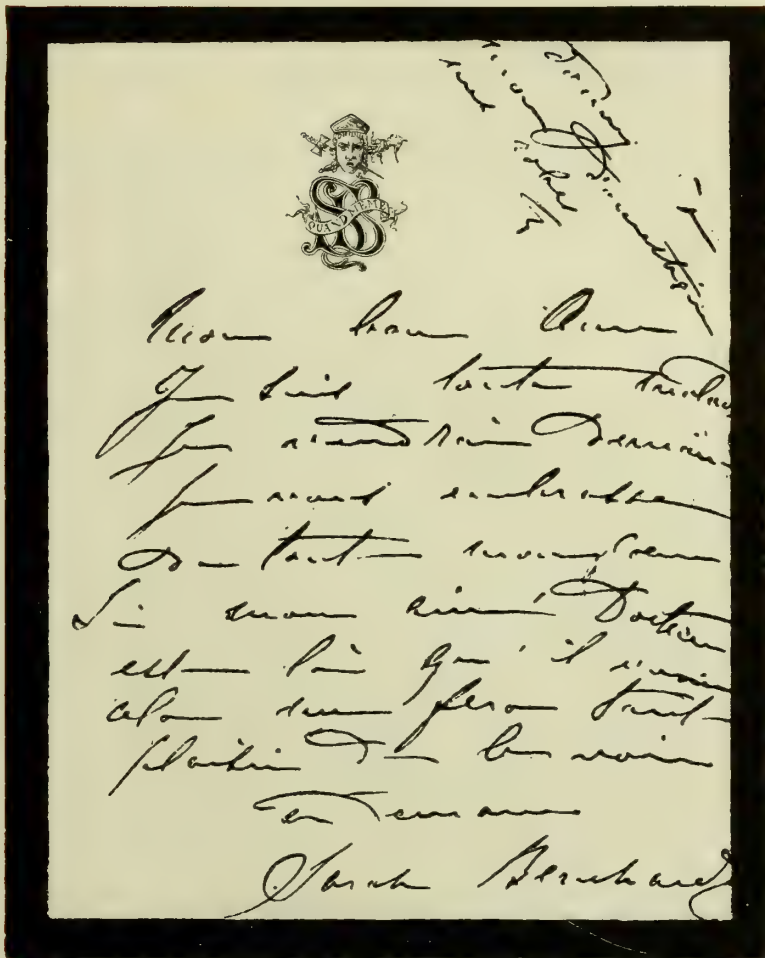 QUAND MEME
Mon bon Ami
Je suis toute
Je viendrai Demain
Je vous embrasse
De tout mon cœur
Si mon aimé Docteur
est là qu'il vienne
cela me fera tant
plaisir De le voir
a Demain
Sarah Bernhardt